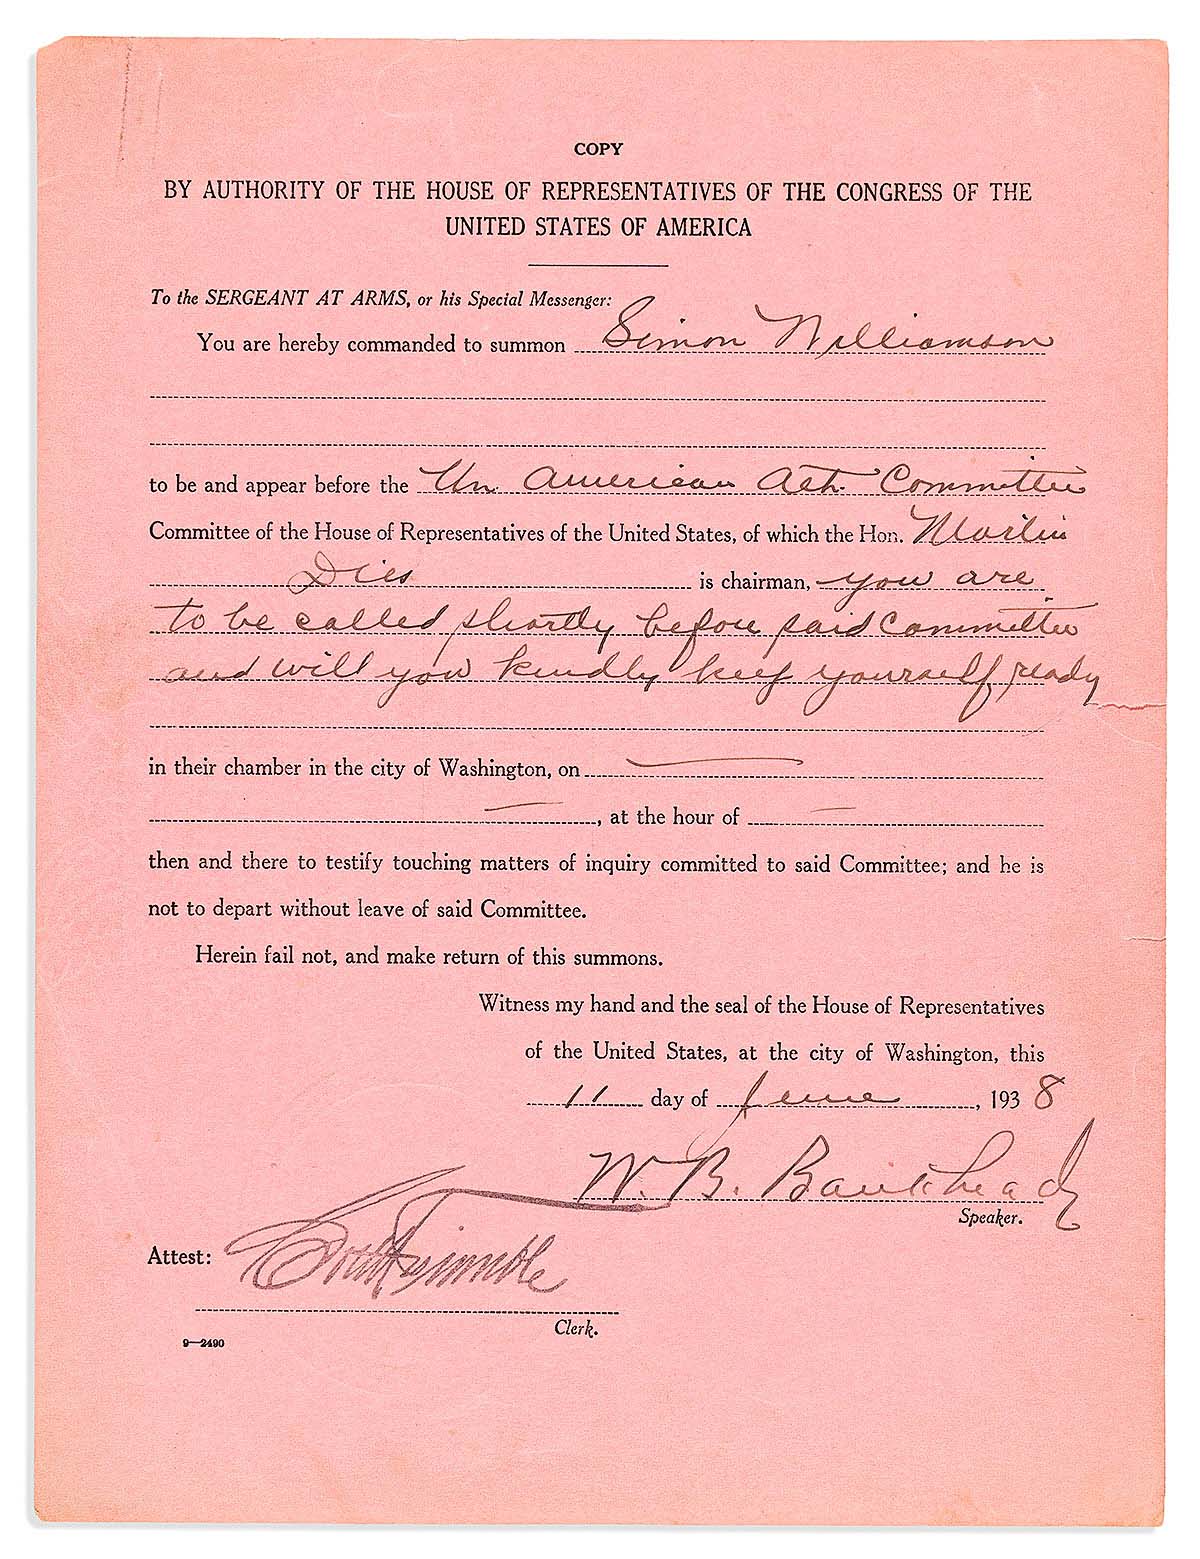 COPY
BY AUTHORITY OF THE HOUSE OF REPRESENTATIVES OF THE CONGRESS OF THE
UNITED STATES OF AMERICA
To the SERGEANT AT ARMS, or his Special Messenger:
You are hereby commanded to summon Simon Williamson
to be and appear before the Un American Act. Committee
Committee of the House of Representatives of the United States, of which the Hon. Martin
Dies is chairman, you are
to be called shortly before said Committee
and will you kindly keep yourself ready
in their chamber in the city of Washington, on —
—, at the hour of —
then and there to testify touching matters of inquiry committed to said Committee; and he is
not to depart without leave of said Committee.
Herein fail not, and make return of this summons.
Witness my hand and the seal of the House of Representatives
of the United States, at the city of Washington, this
11 day of June, 1938
W. B. Bankhead
Speaker.
Attest: South Trimble
Clerk.
9—2490